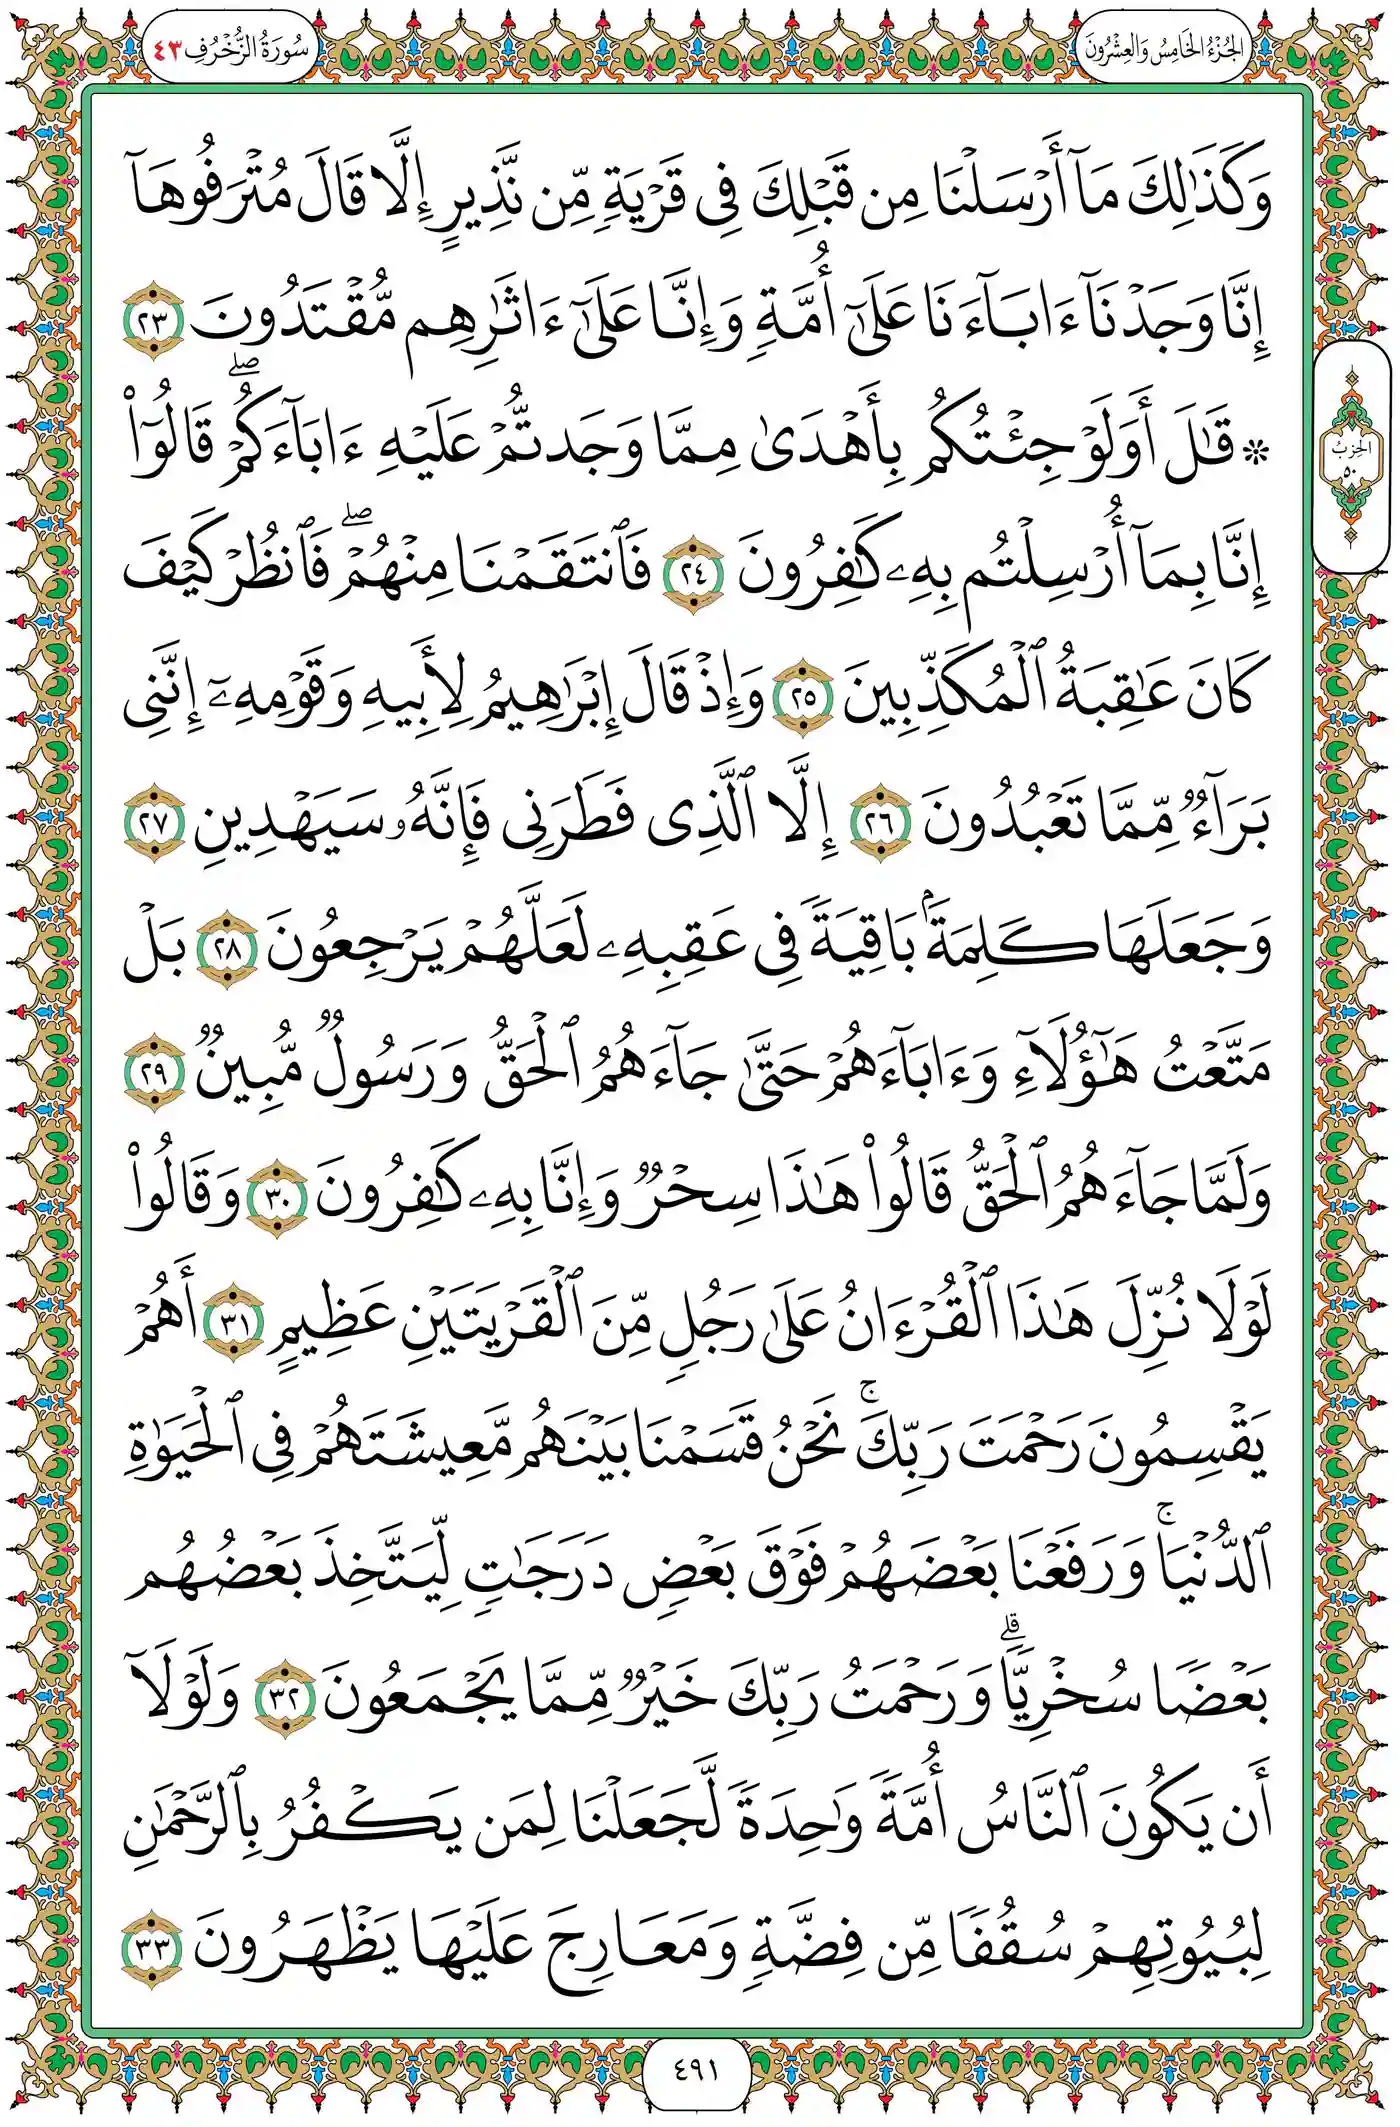 الجُزْءُ الخَامِسُ وَالعِشْرُونَ
سُورَةُ الزُّخْرُفِ ٤٣
وَكَذَٰلِكَ مَآ أَرۡسَلۡنَا مِن قَبۡلِكَ فِي قَرۡيَةٖ مِّن نَّذِيرٍ إِلَّا قَالَ مُتۡرَفُوهَآ
إِنَّا وَجَدۡنَآ ءَابَآءَنَا عَلَىٰٓ أُمَّةٖ وَإِنَّا عَلَىٰٓ ءَاثَٰرِهِم مُّقۡتَدُونَ ٢٣
۞ قَٰلَ أَوَلَوۡ جِئۡتُكُم بِأَهۡدَىٰ مِمَّا وَجَدتُّمۡ عَلَيۡهِ ءَابَآءَكُمۡۖ قَالُوٓاْ
إِنَّا بِمَآ أُرۡسِلۡتُم بِهِۦ كَٰفِرُونَ ٢٤ فَٱنتَقَمۡنَا مِنۡهُمۡۖ فَٱنظُرۡ كَيۡفَ
كَانَ عَٰقِبَةُ ٱلۡمُكَذِّبِينَ ٢٥ وَإِذۡ قَالَ إِبۡرَٰهِيمُ لِأَبِيهِ وَقَوۡمِهِۦٓ إِنَّنِي
بَرَآءٞ مِّمَّا تَعۡبُدُونَ ٢٦ إِلَّا ٱلَّذِي فَطَرَنِي فَإِنَّهُۥ سَيَهۡدِينِ ٢٧
وَجَعَلَهَا كَلِمَةَۢ بَاقِيَةٗ فِي عَقِبِهِۦ لَعَلَّهُمۡ يَرۡجِعُونَ ٢٨ بَلۡ
مَتَّعۡتُ هَٰٓؤُلَآءِ وَءَابَآءَهُمۡ حَتَّىٰ جَآءَهُمُ ٱلۡحَقُّ وَرَسُولٞ مُّبِينٞ ٢٩
وَلَمَّا جَآءَهُمُ ٱلۡحَقُّ قَالُواْ هَٰذَا سِحۡرٞ وَإِنَّا بِهِۦ كَٰفِرُونَ ٣٠ وَقَالُواْ
لَوۡلَا نُزِّلَ هَٰذَا ٱلۡقُرۡءَانُ عَلَىٰ رَجُلٖ مِّنَ ٱلۡقَرۡيَتَيۡنِ عَظِيمٍ ٣١ أَهُمۡ
يَقۡسِمُونَ رَحۡمَتَ رَبِّكَۚ نَحۡنُ قَسَمۡنَا بَيۡنَهُم مَّعِيشَتَهُمۡ فِي ٱلۡحَيَوٰةِ
ٱلدُّنۡيَاۚ وَرَفَعۡنَا بَعۡضَهُمۡ فَوۡقَ بَعۡضٖ دَرَجَٰتٖ لِّيَتَّخِذَ بَعۡضُهُم
بَعۡضٗا سُخۡرِيّٗاۗ وَرَحۡمَتُ رَبِّكَ خَيۡرٞ مِّمَّا يَجۡمَعُونَ ٣٢ وَلَوۡلَآ
أَن يَكُونَ ٱلنَّاسُ أُمَّةٗ وَٰحِدَةٗ لَّجَعَلۡنَا لِمَن يَكۡفُرُ بِٱلرَّحۡمَٰنِ
لِبُيُوتِهِمۡ سُقُفٗا مِّن فِضَّةٖ وَمَعَارِجَ عَلَيۡهَا يَظۡهَرُونَ ٣٣
الحِزْبُ
٥٠
٤٩١